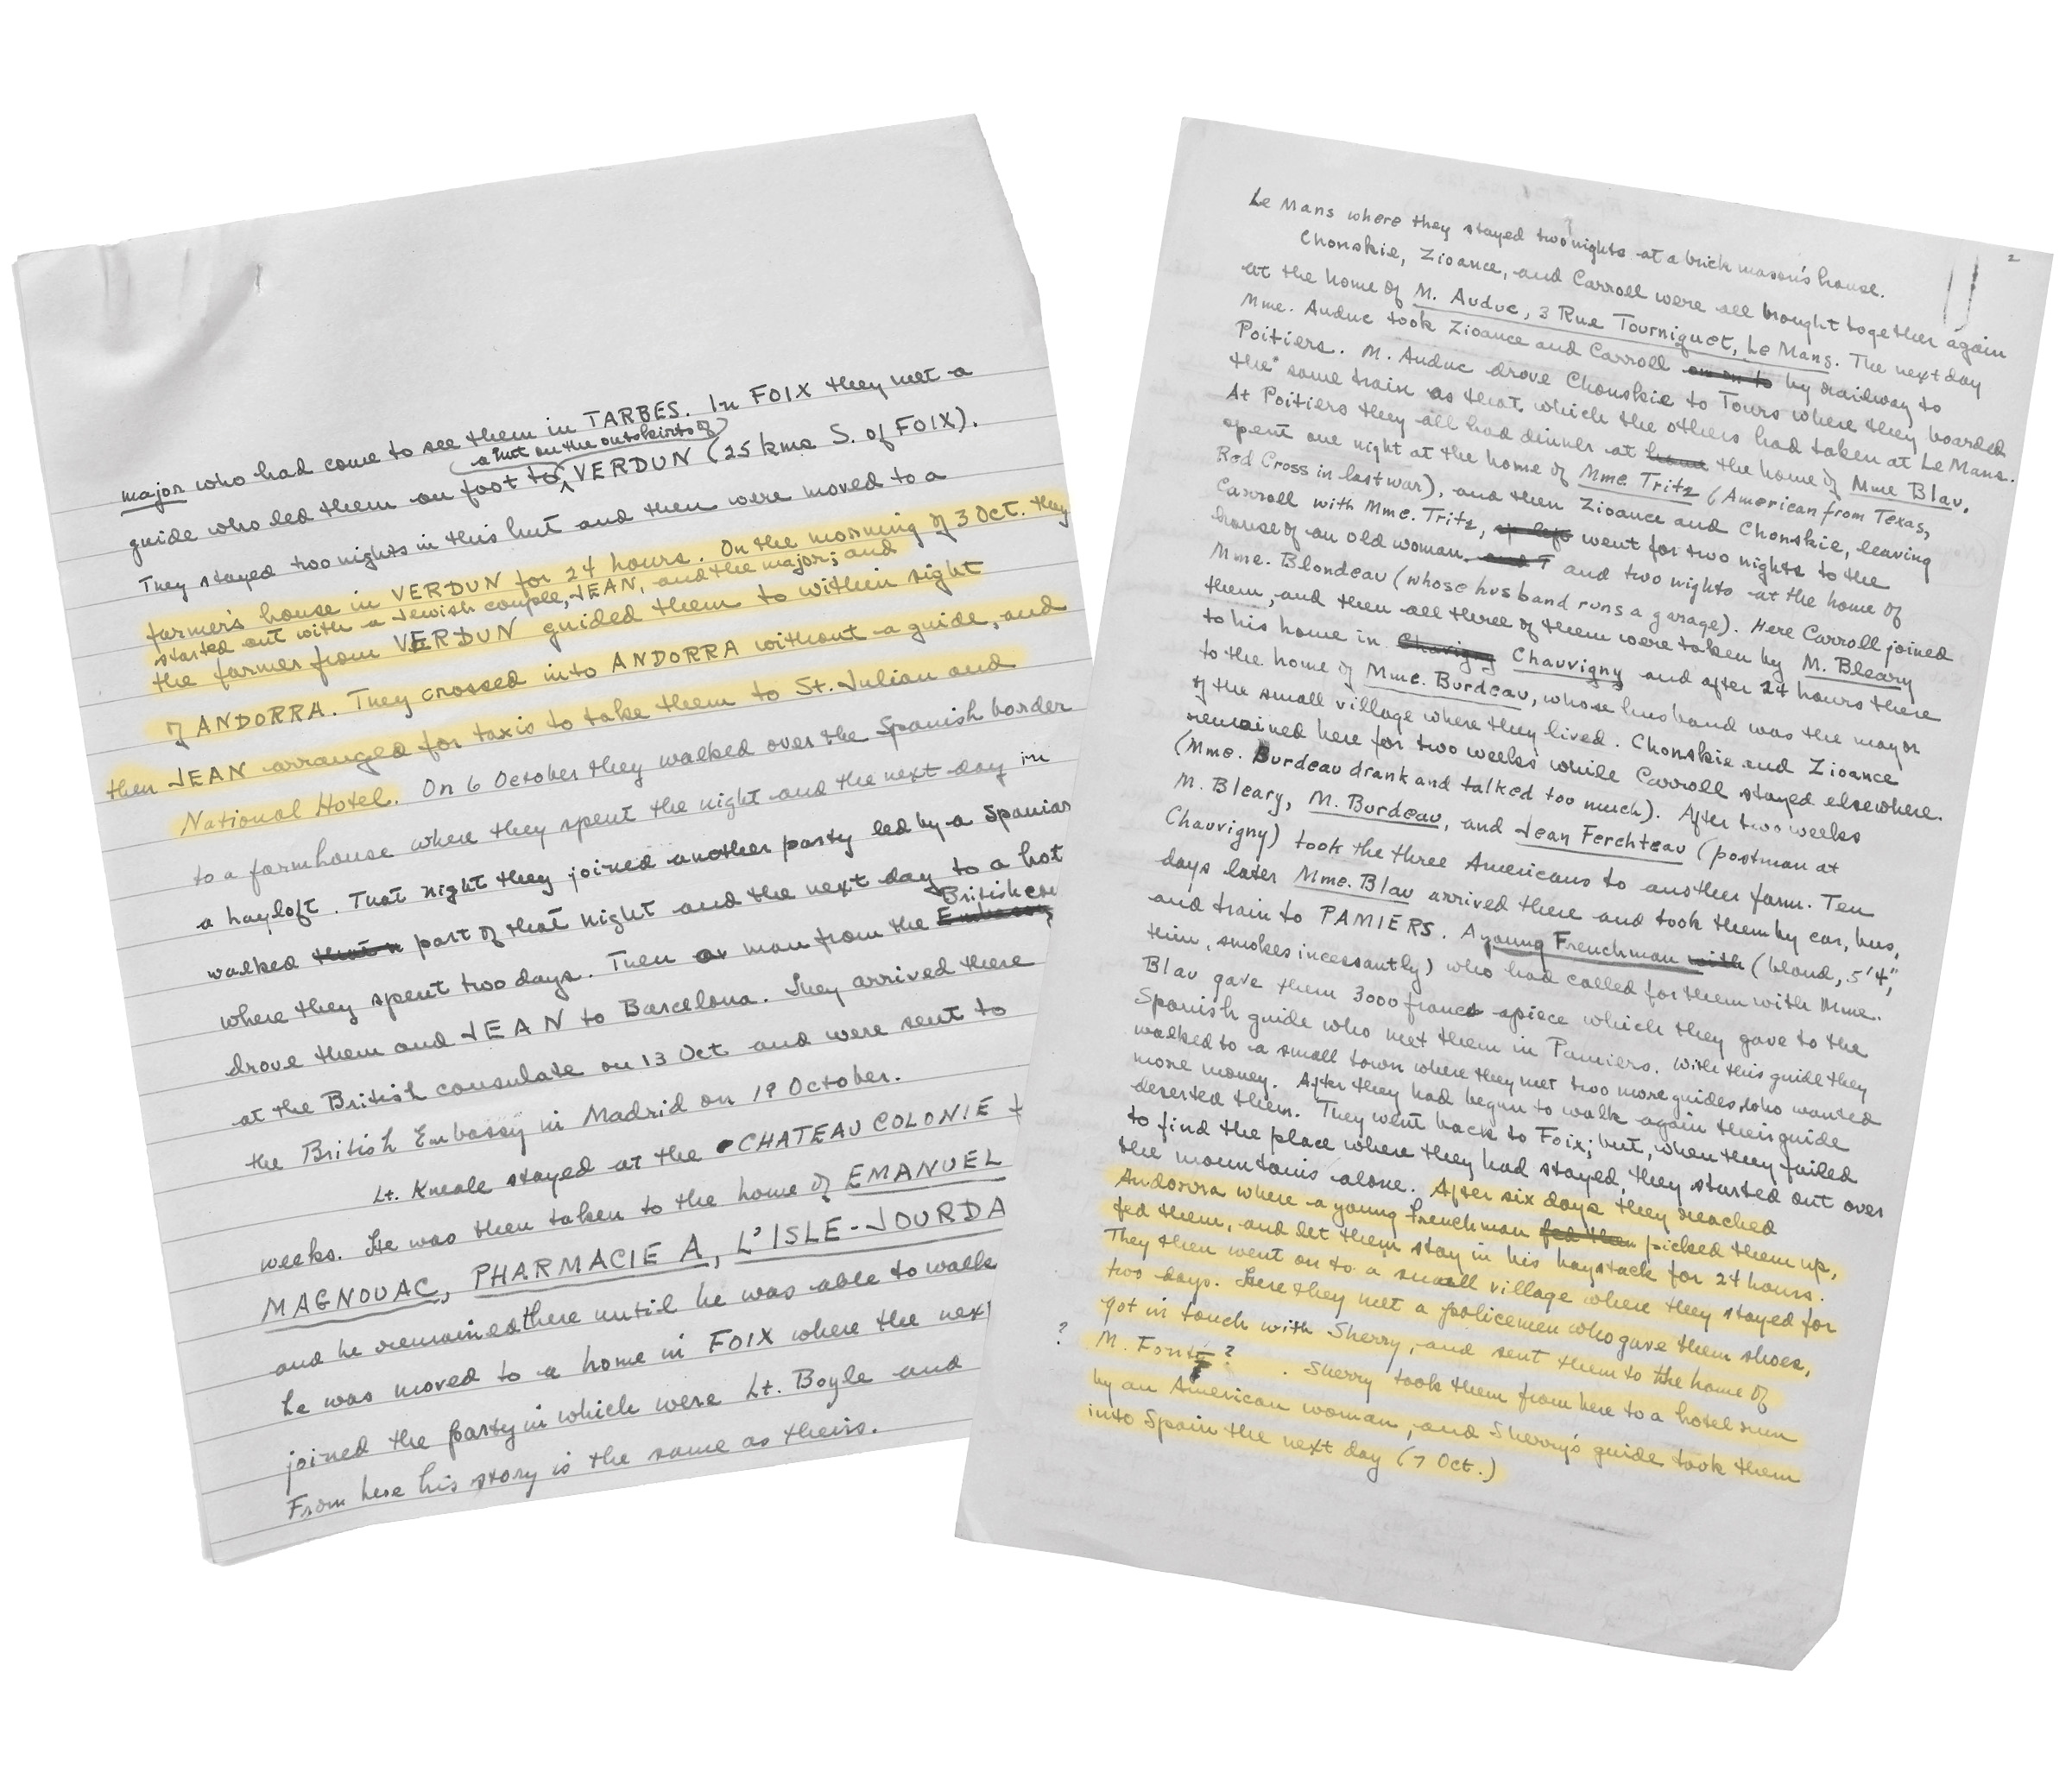 major who had come to see them in TARBES. In FOIX they met a
guide who led them on foot to (a hut on the outskirts of) VERDUN (25 kms S. of FOIX).
They stayed two nights in this hut and then were moved to a
farmer's house in VERDUN for 24 hours. On the morning of 3 Oct. they
started out with a Jewish couple, JEAN, and the major; and
the farmer from VERDUN guided them to within sight
of ANDORRA. They crossed into ANDORRA without a guide, and
then JEAN arranged for taxis to take them to St. Julian and
National Hotel. On 6 October they walked over the Spanish border
to a farmhouse where they spent the night and the next day in
a hayloft. That night they joined another party led by a Spaniar
walked that n part of that night and the next day to a hot
where they spent two days. Then a man from the Embassy British con
drove them and JEAN to Barcelona. They arrived there
at the British consulate on 13 Oct and were sent to
the British Embassy in Madrid on 19 October.
Lt. Kneale stayed at the CHATEAU COLONIE
weeks. He was then taken to the home of EMANUEL
MAGNOUAC, PHARMACIE A, L'ISLE-JOURDA
and he remained there until he was able to walk
he was moved to a home in FOIX where the next
joined the party in which were Lt. Boyle and
From here his story is the same as theirs.
2
Le Mans where they stayed two nights at a brick mason's house.
Chonskie, Zioance, and Carroll were all brought together again
at the home of M. Auduc, 3 Rue Tourniquet, Le Mans. The next day
Mme. Auduc took Zioance and Carroll on on to by railway to
Poitiers. M. Auduc drove Chonskie to Tours where they boarded
the same train as that which the others had taken at Le Mans.
At Poitiers they all had dinner at home the home of Mme Blav,
spent one night at the home of Mme. Tritz (American from Texas,
Red Cross in last war), and then Zioance and Chonskie, leaving
Carroll with Mme. Tritz, went for two nights to the
house of an old woman. and T and two nights at the home of
Mme. Blondeau (whose husband runs a garage). Here Carroll joined
them, and then all three of them were taken by M. Bleary
to his home in Chavigny Chauvigny and after 24 hours there
to the home of Mme. Burdeau, whose husband was the mayor
of the small village where they lived. Chonskie and Zioance
remained here for two weeks while Carroll stayed elsewhere.
(Mme. Burdeau drank and talked too much). After two weeks
M. Bleary, M. Burdeau, and Jean Ferchteau (postman at
Chauvigny) took the three Americans to another farm. Ten
days later Mme. Blav arrived there and took them by car, bus,
and train to PAMIERS. A young Frenchman with (blond, 5'4",
thin, smokes incessantly) who had called for them with Mme.
Blav gave them 3000 francs apiece which they gave to the
Spanish guide who met them in Pamiers. With this guide they
walked to a small town where they met two more guides, who wanted
more money. After they had begun to walk again their guide
deserted them. They went back to Foix; but, when they failed
to find the place where they had stayed, they started out over
the mountains alone. After six days they reached
Andorra where a young Frenchman fed them picked them up,
fed them, and let them stay in his haystack for 24 hours.
They then went on to a small village where they stayed for
two days. Here they met a policemen who gave them shoes,
got in touch with Sherry, and sent them to the home of
? M. Fonts ? . Sherry took them from here to a hotel run
by an American woman, and Sherry's guide took them
into Spain the next day (7 Oct.)